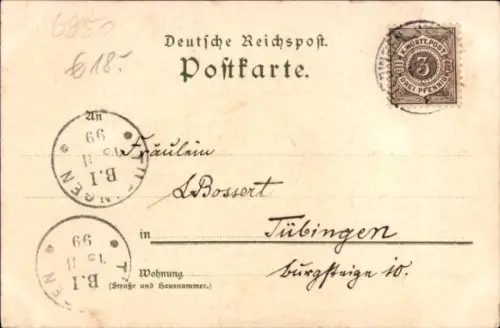 6950
€ 18.-
Deutsche Reichspost.
Postkarte.
K. WÜRTT. POST
3
DREI PFENNIG
An
Fräulein
L Bossert
in Tübingen
Wohnung Burgsteige 10.
(Straße und Hausnummer.)
TÜBINGEN
B.I
11
99
B.I
11
99